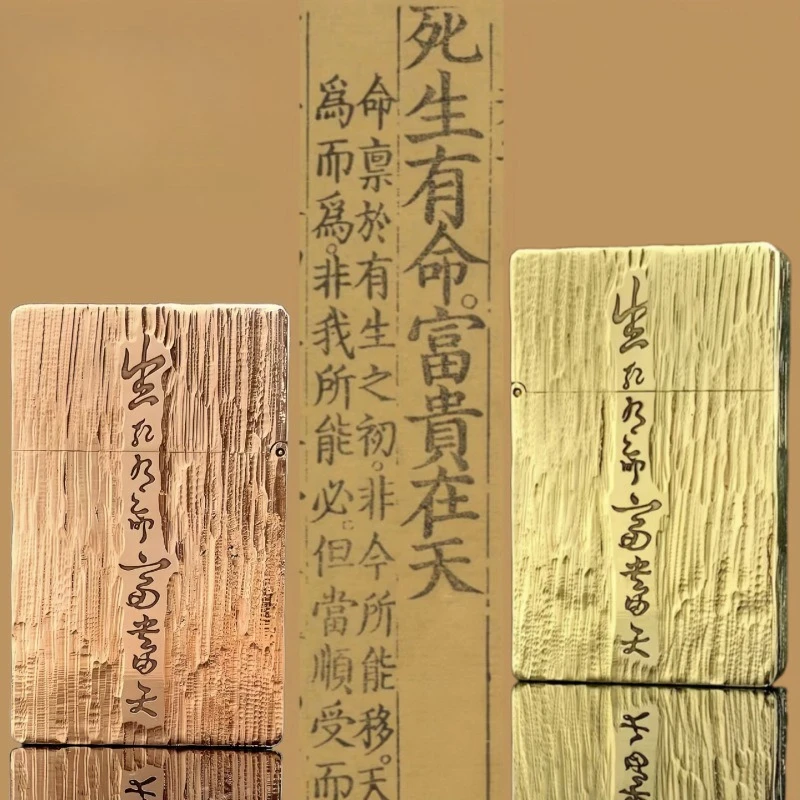 生死有命富貴天
死生有命。富貴在天
命禀於有生之初。非今所能移。天
爲而爲。非我所能必。但當順受而
生死有命富貴天